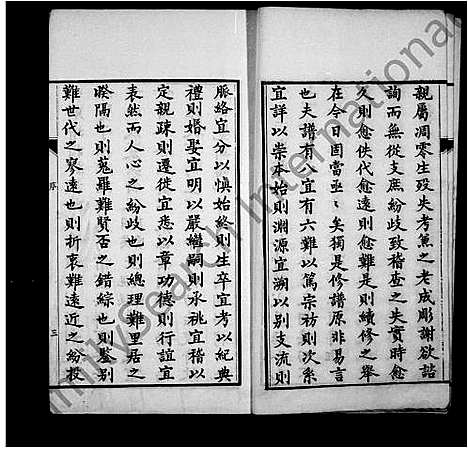 親屬凋零生歿失考蕉之老成彫謝欲諮
詢而無從支庶紛歧致稽查之失實時愈
久則愈佚代愈遠則愈難是則續修之舉
在今日固當亟亟矣獨是修譜原非易言
也夫譜有八宜有六難以篤宗祊則次系
宜詳以崇本始則淵源宜溯以別支流則
脈絡宜分以慎始終則生卒宜考以紀典
禮則婚娶宜明以嚴繼嗣則承祧宜稽以
定親疎則遷徙宜悉以章功德則行誼宜
表然而人心之紛歧也則總理難里居之
暌隔也則蒐羅難賢否之錯綜也則鑒別
難世代之寥遠也則折衷難遠近之紛投
序
三
FamilySearch International